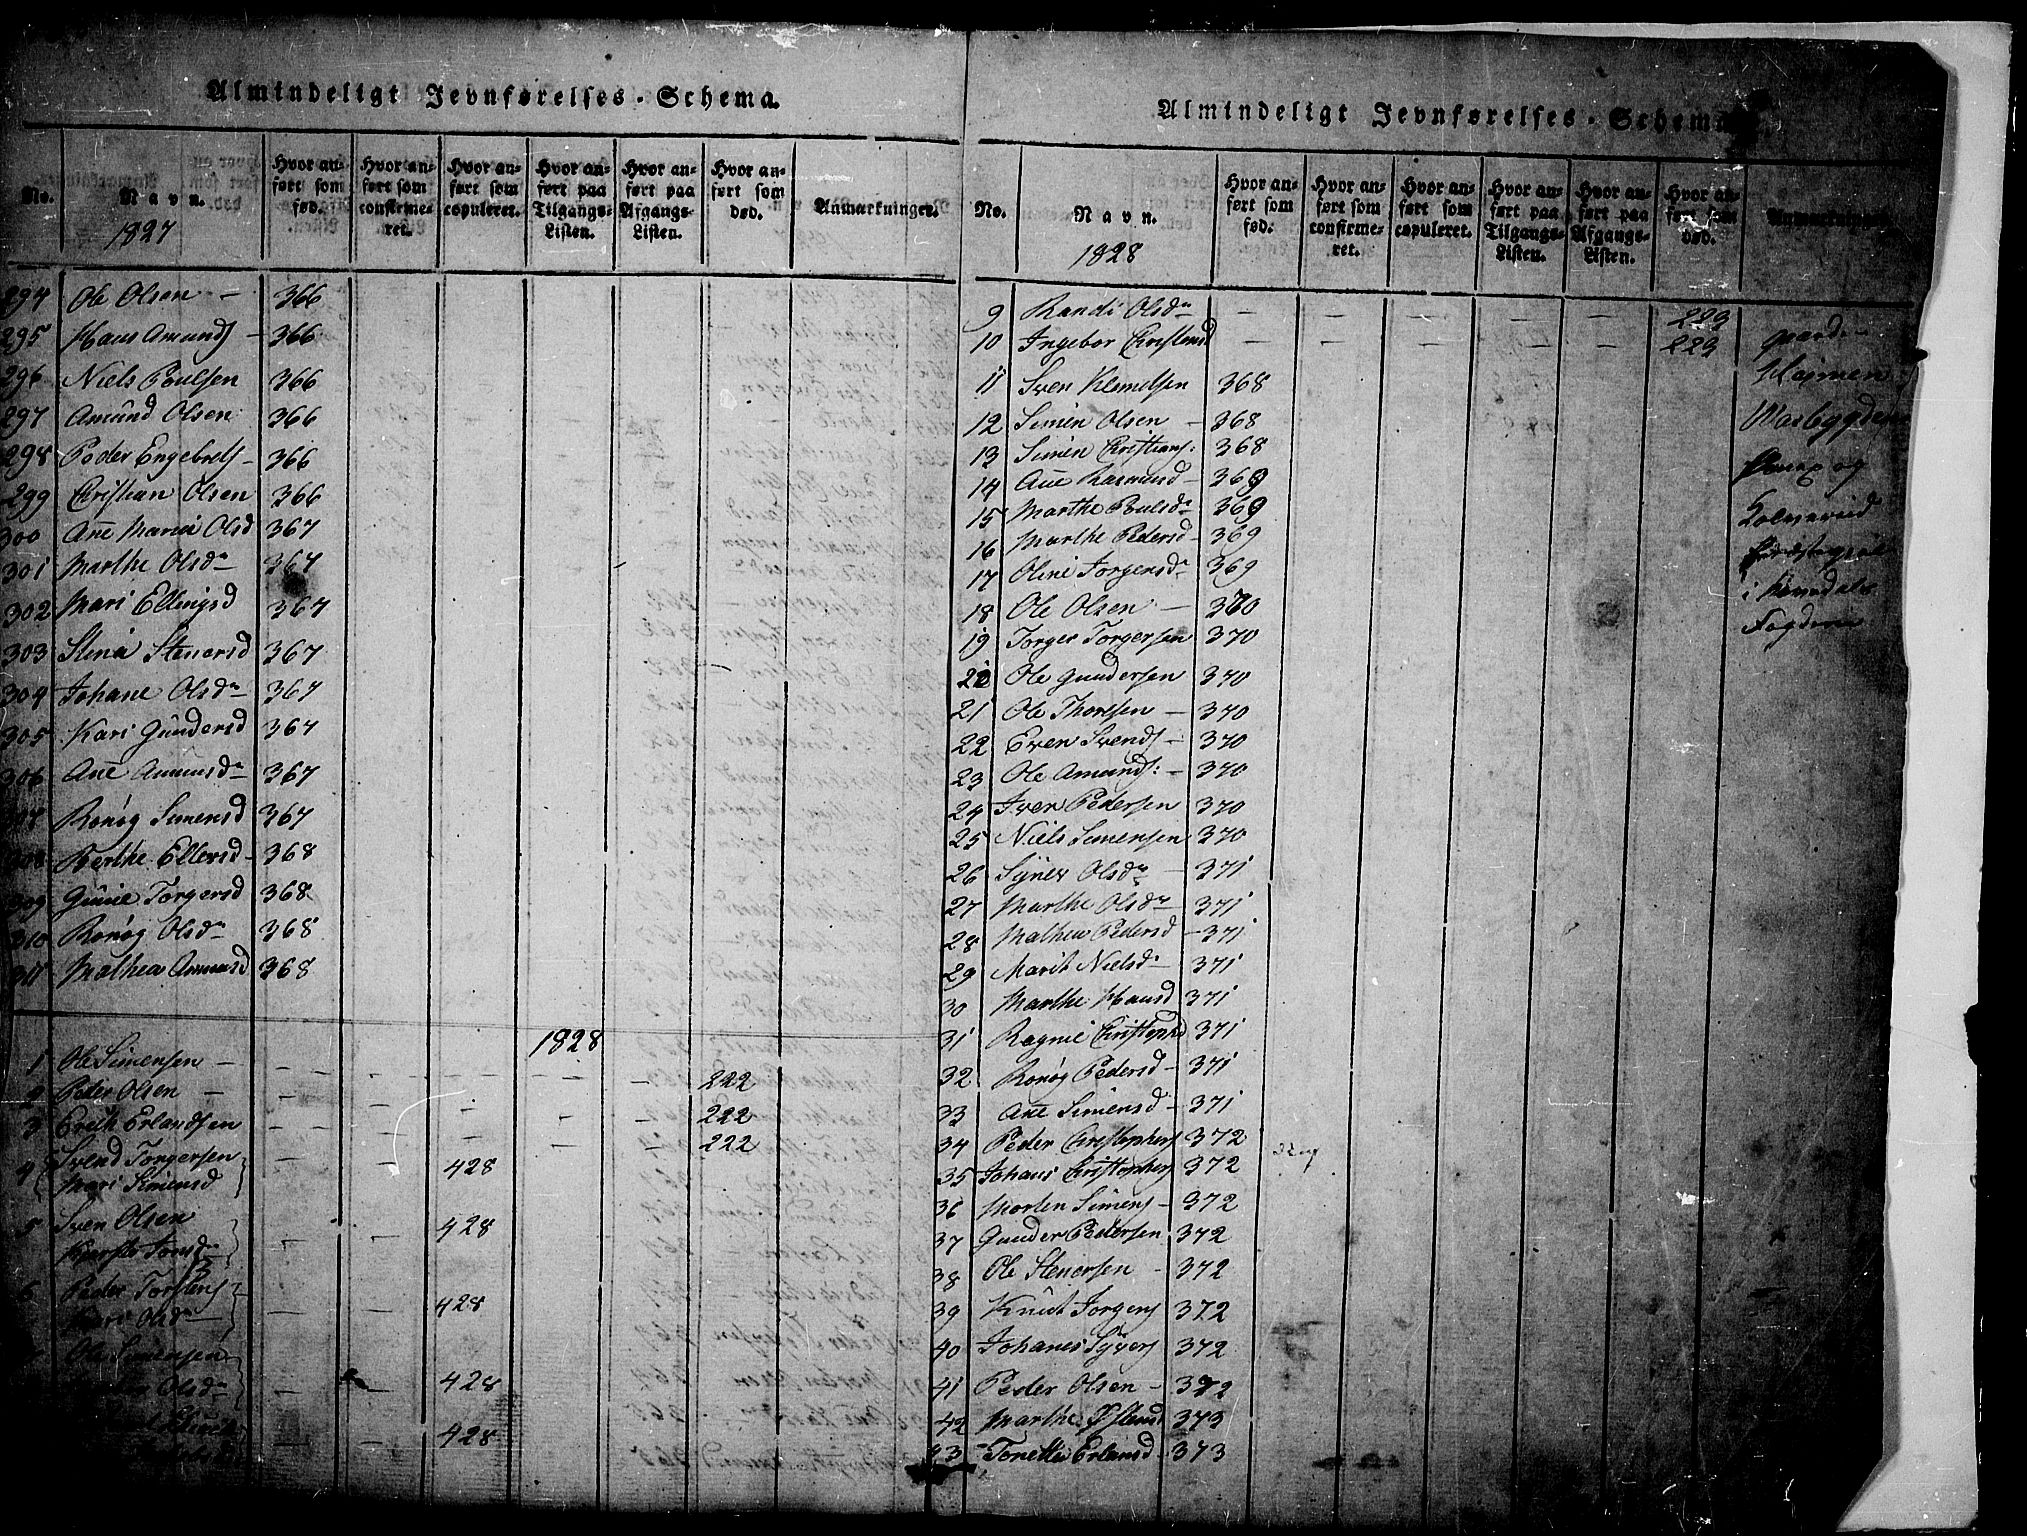 Almindeligt Jevnførelses-Schema.
No. | Navn. 1827 | Hvor anført som fød. | Hvor anført som confirmeret. | Hvor anført som copuleret. | Hvor anført paa Tilgangs-Listen. | Hvor anført paa Afgangs-Listen. | Hvor anført som død. | Anmærkninger.
294 Ole Olsen – 366
295 Hans Amunds – 366
296 Niels Poulsen 366
297 Amund Olsen 366
298 Peder Engebrets – 366
299 Christian Olsen 366
300 Ane Marie Olsd 367
301 Marthe Olsdr 367
302 Mari Ellingsd 367
303 Stena Stenersd 367
304 Johane Olsdr 367
305 Kari Gundersd 367
306 Ane Amunsdr 367
307 Ronøg Simensd 367
308 Berthe Ellersd – 368
309 Gunie Torgersd 368
310 Ronøg Olsdr 368
311 Mathea Amunsd 368
1828
1 Ole Simensen – 222
2 Peder Olsen – 222
3 Erich Erlandsen – 222
4 Svend Torgersen
Mari Simensd 428
5 Sven Olsen
428
6 Peder Torstens
Kari Olsdr 428
Ole Simensen
Olsdr 428
428
Almindeligt Jevnførelses-Schema.
No. | Navn. 1828 | Hvor anført som fød. | Hvor anført som confirmeret. | Hvor anført som copuleret. | Hvor anført paa Tilgangs-Listen. | Hvor anført paa Afgangs-Listen. | Hvor anført som død. | Anmærkninger
9 Randi Olsdr – – – – – 223
10 Ingebor Christensd – – – – – 223
11 Sven Klemetsen 368
12 Simen Olsen – 368
13 Simen Christians: 368
14 Ane Rasmusd – 369
15 Marthe Poulsdr 369
16 Marthe Pedersd – 369
17 Oline Jorgensdr 369
18 Ole Olsen – 370
19 Torger Torgersen 370
20 Ole Gundersen 370
21 Ole Thoresen – 370
22 Even Svends – 370
23 Ole Amunds: – 370
24 Iver Pedersen 370
25 Niels Simensen 370
26 Syner Olsdr – 371
27 Marthe Olsdr 371
28 Mathea Pedersd – 371
29 Marit Nielsdr 371
30 Marthe Hansd 371
31 Ragnie Christophd 371
32 Ronøg Pedersd – 371
33 Ane Simensd – 371
34 Peder Christophers 372
35 Johans Christophers 372
36 Morten Simens – 372
37 Gunder Pedersen 372
38 Ole Stenersen – 372
39 Knud Torgers 372
40 Johanes Syvers 372
41 Peder Olsen – 372
42 Marthe Østensd 373
43 Tonette Erlansd – 373
og
i
Fogderie